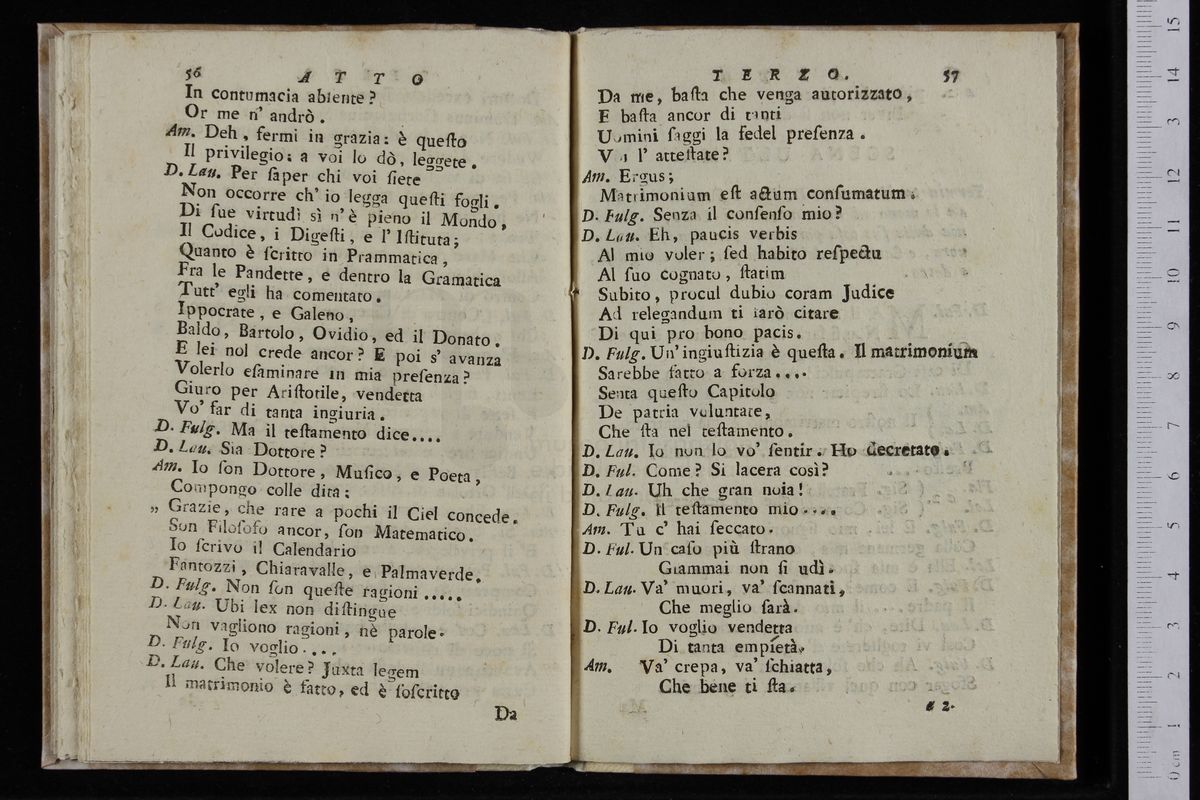 56 A T T O
In contumacia absente?
Or me n' andrò.
Am. Deh, fermi in grazia: è queſto
Il privilegio: a voi lo dò, leggete.
D. Lau. Per ſaper chi voi ſiete
Non occorre ch' io legga queſti fogli.
Di ſue virtudì sì n' è pieno il Mondo,
Il Codice, i Digeſti, e l' Iſtituta;
Quanto è ſcritto in Prammatica,
Fra le Pandette, e dentro la Gramatica
Tutt' egli ha comentato.
Ippocrate, e Galeno,
Baldo, Bartolo, Ovidio, ed il Donato.
E lei nol crede ancor? E poi s' avanza
Volerlo eſaminare in mia preſenza?
Giuro per Ariſtotile, vendetta
Vo' far di tanta ingiuria.
D. Fulg. Ma il teſtamento dice....
D. Lau. Sia Dottore?
Am. Io ſon Dottore, Muſico, e Poeta,
Compongo colle dita:
„ Grazie, che rare a pochi il Ciel concede.
Son Filoſofo ancor, ſon Matematico.
Io ſcrivo il Calendario
Fantozzi, Chiaravalle, e Palmaverde.
D. Fulg. Non ſon queſte ragioni.....
D. Lau. Ubi lex non diſtingue
Non vagliono ragioni, nè parole.
D. Fulg. Io voglio....
D. Lau. Che volere? Juxta legem
Il matrimonio è fatto, ed è ſoſcritto
Da
T E R Z O. 57
Da me, baſta che venga autorizzato,
E baſta ancor di tanti
Uomini ſaggi la fedel preſenza.
Voi l' atteſtate?
Am. Ergus;
Matrimonium eſt actum conſumatum.
D. Fulg. Senza il conſenſo mio?
D. Lau. Eh, paucis verbis
Al mio voler; ſed habito reſpectu
Al ſuo cognato, ſtatim
Subito, procul dubio coram Judice
Ad relegandum ti farò citare
Di qui pro bono pacis.
D. Fulg. Un' ingiuſtizia è queſta. Il matrimonium
Sarebbe fatto a forza....
Senta queſto Capitolo
De patria voluntate,
Che ſta nel teſtamento.
D. Lau. Io non lo vo' ſentir. Ho decretato.
D. Ful. Come? Si lacera così?
D. Lau. Uh che gran noia!
D. Fulg. Il teſtamento mio....
Am. Tu c' hai ſeccato.
D. Ful. Un caſo più ſtrano
Giammai non ſi udì.
D. Lau. Va' muori, va' ſcannati,
Che meglio ſarà.
D. Ful. Io voglio vendetta
Di tanta empietà.
Am. Va' crepa, va' ſchiatta,
Che bene ti ſta.
2.